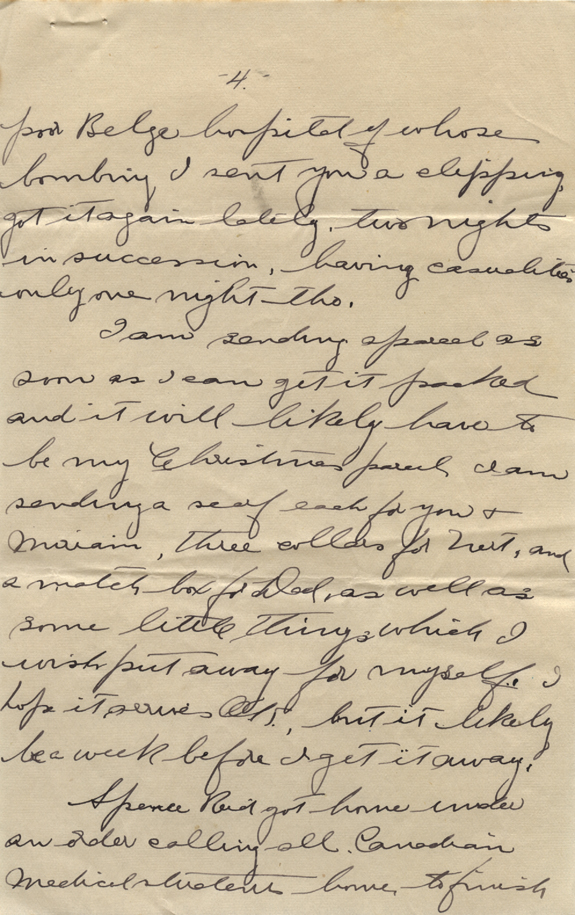 -4.-
poor Belge hospital of whose
bombing I sent you a clipping,
got it again lately, two nights
in succession, having casualties
only one night tho.
I am sending a parcel as
soon as I can get it packed
and it will likely have to
be my Christmas parcel. I am
sending a scarf each for you +
Miriam, three collars for Nert, and
a match box for Dad, as well as
some little things which I
wish put away for myself. I
hope it arrives O.K., but it likely
be a week before I get it away.
Spence Reid got home under
an order calling all Canadian
Medical students home, to finish